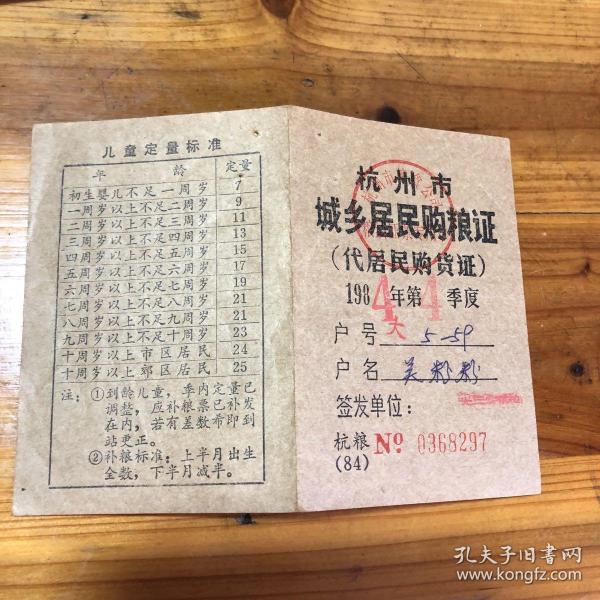 儿童定量标准
年 龄 定量
初生婴儿不足一周岁 7
一周岁以上不足二周岁 9
二周岁以上不足三周岁 11
三周岁以上不足四周岁 13
四周岁以上不足五周岁 15
五周岁以上不足六周岁 17
六周岁以上不足七周岁 19
七周岁以上不足八周岁 21
八周岁以上不足九周岁 21
九周岁以上不足十周岁 23
十周岁以上市区居民 24
十周岁以上郊区居民 25
注：①到龄儿童，季内定量已
调整，应补粮票已补发
在内，若有差数布即到
站更正。
②补粮标准：上半月出生
全数，下半月减半。
杭州市
城乡居民购粮证
(代居民购货证)
1984年第4季度
户号 大 5-59
户名 吴
签发单位：
杭粮 № 0368297
(84)
孔夫子旧书网
www.kongfz.com